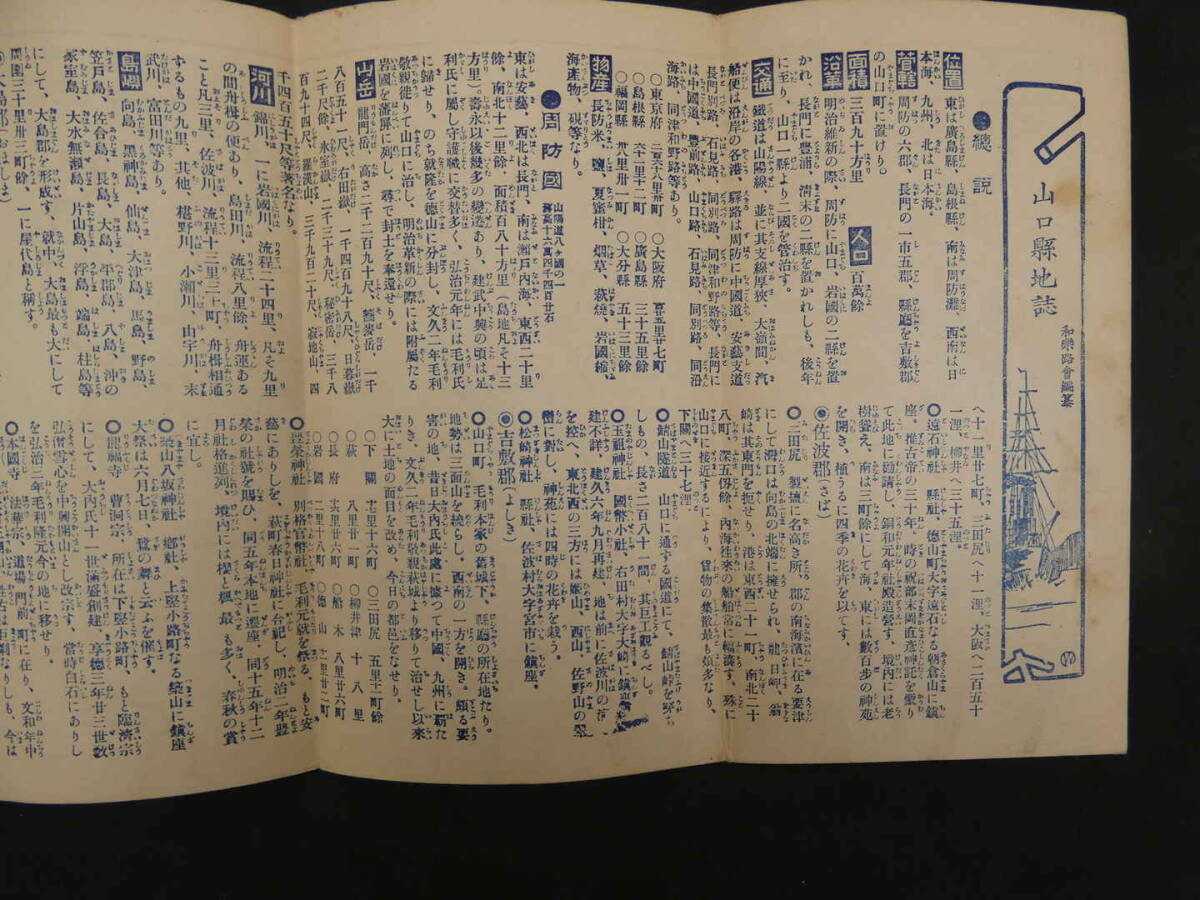 山口縣地誌
和樂路會編纂
總説
位置 東は廣島縣、島根縣、南は周防灘、西南は日
本海、九州、北は日本海。
管轄 周防の六郡、長門の一市五郡、縣廳を吉敷郡
の山口町に置けり。
面積 三百九十方里 人口 百萬餘
沿革 明治維新の際、周防に山口、岩國の二縣を置
かれ、長門に豊浦、清末の二縣を置かれしも、後年
に至り、山口一縣より二國を管治す。
交通 鐵道は山陽線、並に其支線厚狹、大嶺間、汽
船便は沿岸の各港、驛路は周防に中國道、安藝支道
長門別路、石見路、同別路、同津和野路等、長門に
は中國道、豊前路、山口路、石見路、同別路、同沿
海路、同津和野路等あり。
○東京府 ○大阪府
○島根縣 六十里十二町 ○廣島縣 三十五里餘
○福岡縣 卅八里卅一町 ○大分縣 五十三里餘
物産 長防米、鹽、夏蜜柑、烟草、萩燒、岩國縮
海産物、硯等なり。
周防國 山陽道八ヶ國の一
東は安藝、西北は長門、南は瀬戸内海、東西二十里
餘、南北十二里餘、面積百八十方里(島地凡そ十三
方里)。壽永以後幾多の變遷あり、建武中興の頃は足
利氏に屬し守護職に交替多く、弘治元年には毛利氏
に歸せり、のち就隆を德山に分封し、文久二年毛利
敬親徙りて山口に治し、明治革新の際には附屬たる
岩國を藩屏に列し、尋で封土を奉還せり。
山岳 龍門岳、高さ二千二百九十尺、饒麥岳、一千
八百五十一尺、右田嶽、一千四百九十八尺、日暮嶽
二千尺餘、氷室嶽、二千三十九尺、秘密岳、三千八
百九十四尺、羅漢山、三千九百二十尺、寂地山、四
千四百五十尺等著名なり。
河川 錦川、一に岩國川、流程二十四里、凡そ九里
の間舟楫の便あり、島田川、流程八里餘、舟運ある
こと凡三里、佐波川、流程十三里三十町、舟楫相通
ずるもの九里、其他、椹野川、小瀬川、由宇川、末
武川、富田川等あり。
島嶼 向島、黒神島、仙島、大津島、馬島、野島、
笠戸島、佐合島、長島、大島、平郡島、八島、沖の
家室島、大水無瀬島、片山島、浮島、端島、柱島等
にして、大島郡を形成す、就中、大島最も大にして
周圍三十里卅三町餘、一に屋代島と稱す。
へ十一里廿七町、三田尻へ十一浬、大阪へ二百五十
一浬、柳井へ三十五浬
◎遠石神社 縣社、德山町大字遠石なる朝倉山に鎭
座、推古帝の三十年、時の祝部末岡直彦神託を蒙り
て此地に勸請し、銅和元年社殿造營す、境内には老
樹聳え、南は三町餘にして海、東には數百歩の神苑
を開き、植うるに四季の花卉を以てす。
◎佐波郡(さば)
◎三田尻 製鹽に名高き所、郡の南海濱に在る要津
にして灣口は向島の北端に擁せられ、龍日岬、翁
崎は其東門を扼せり、港は東西二十一町、南北二十
八町、深五仭餘、内海徃來の船舶常に輻湊す、殊に
山口に接近するにより、貨物の集散最も頻多なり、
下關へ三十七浬
◎鯖山隧道 山口に通ずる國道にて、鯖山峠を穿ち
しもの、長さ二百八十一間、其巨工觀るべし。
◎玉祖神社 國幣小社、右田村大字大崎に鎭座
建不詳、建久六年九月再建、地は前に佐波川の清
を控へ、東北西の三方には姫山、西山、佐野山の翠
巒に對し、神苑には四時の花卉を栽う。
◎松崎神社 縣社、佐波村大字宮市に鎭座。
◎吉敷郡(よしき)
◎山口町 毛利本家の舊城下、縣廳の所在地たり。
地勢は三面山を繞らし、西南の一方を開き、頗る要
害の地、昔日大内氏此處に據つて中國、九州に覇た
りき、文久二年毛利敬親萩城より移りて治せし以來
大に土地の面目を改め、今日の都邑をなせり。
○下關 ○三田尻 五里十二町餘
○萩 八里廿一町 ○柳井津 十八里
○長府 ○船木 八里廿六町
○岩國 二里十八町 ○德山
◎豊榮神社 別格官幣社、毛利元就を祭る、もと安
藝にありしを、萩町春日神社に合祀し、明治二年豊
榮の社號を賜ひ、同五年本地に遷座、同十五年十二
月社格進列、境内には櫻と楓、最も多く、春秋の賞
に宜し。
◎築山八坂神社 鄕社、上竪小路町なる築山に鎭座
大祭は六月七日、鷺の舞と云ふを催す。
◎龍福寺 曹洞宗、所在は下竪小路町、もと臨濟宗
にして、大内氏十一世滿盛創建、享德三年廿三世敎
弘、澘雪心を中興開山とし改宗す、當時白石にありし
を弘治三年毛利隆元今の地に移せり。
◎本國寺 法華宗、道場門前町に在り、文和年中